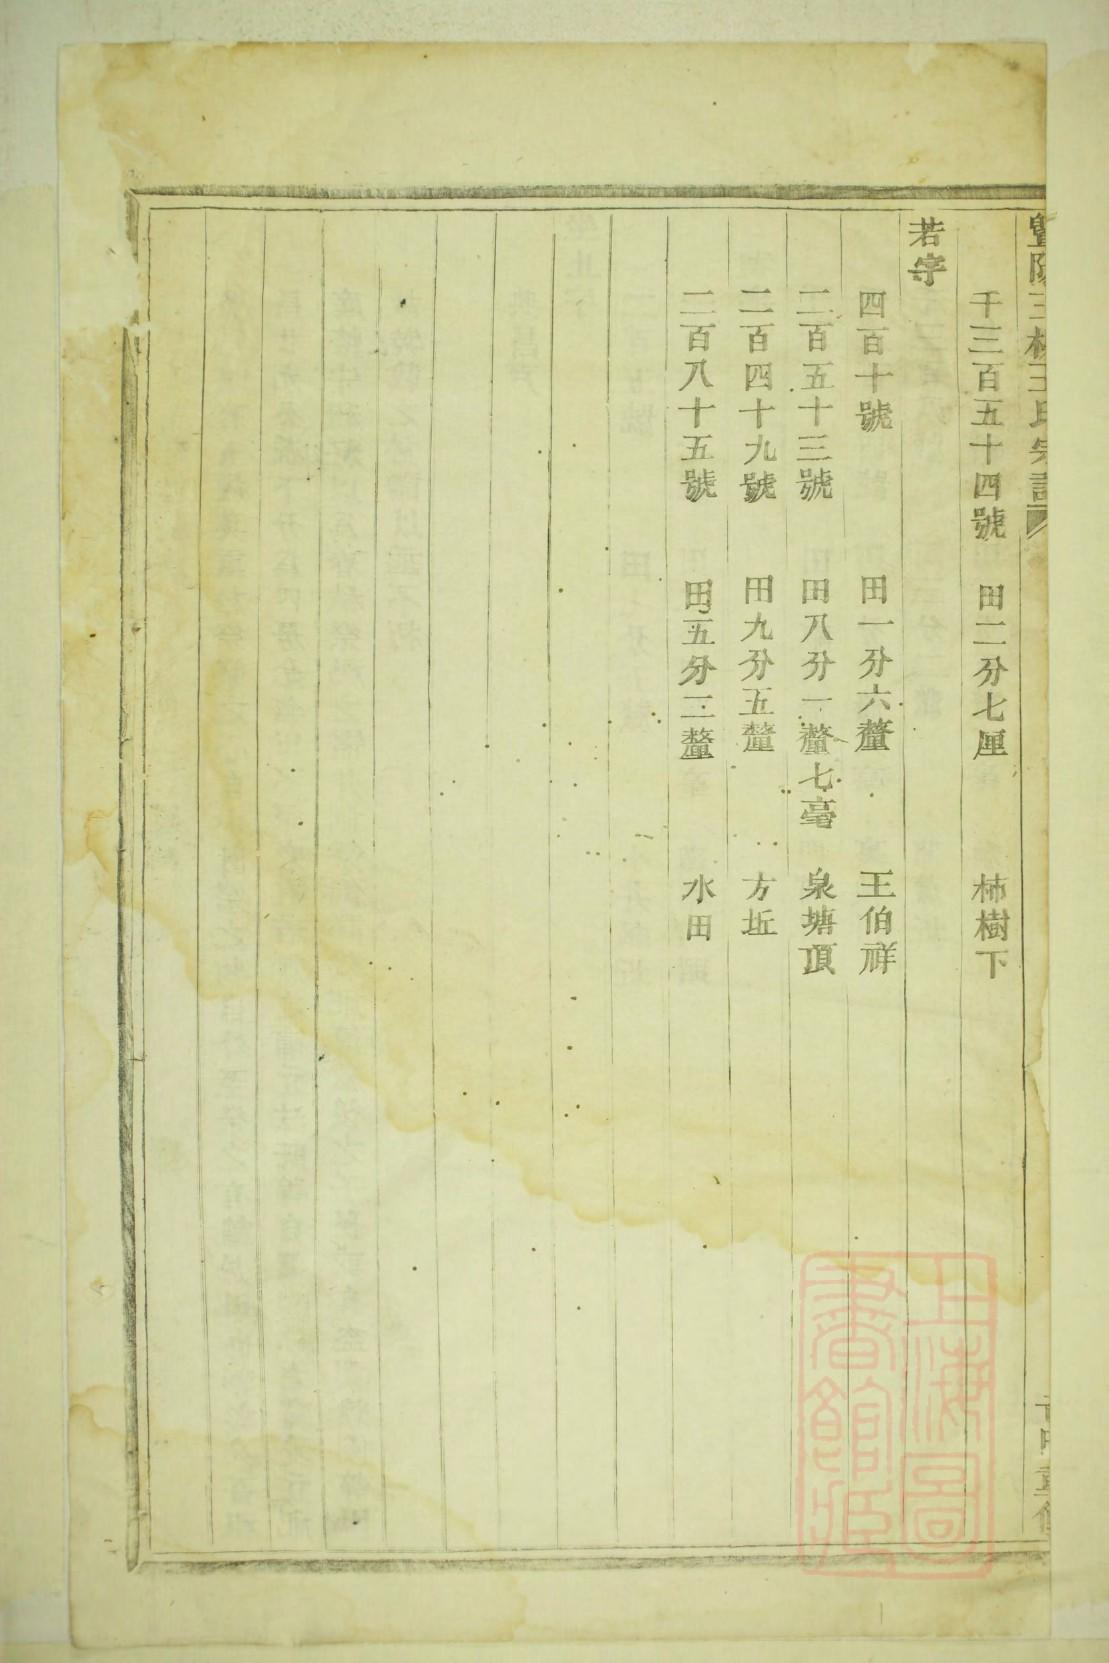 暨陽王
王氏宗譜
千三百五十四號　田二分七厘　柿樹下
若字
四百十號　田一分六釐　王伯祥
二百五十三號　田八分一釐七毫　泉塘頂
二百四十九號　田九分五釐　方坵
二百八十五號　田五分三釐　水田
上海圖書館藏